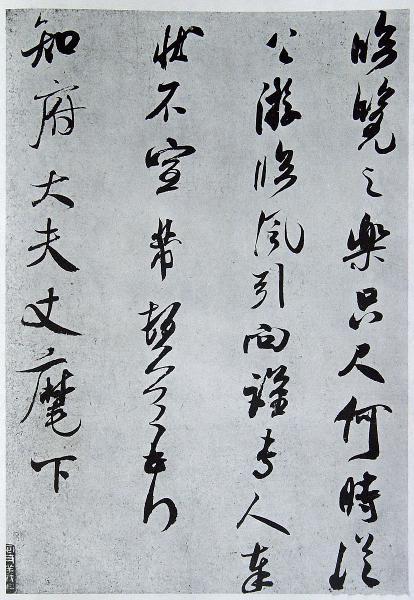 臨覽之樂只尺何時從
公游臨風引向謹專人奉
狀不宣 芾頓首再拜
知府大夫丈麾下